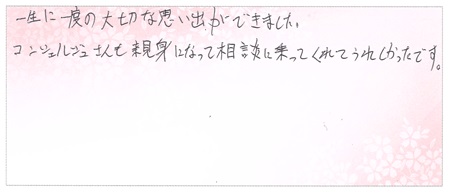 一生に一度の大切な思い出ができました。
コンシェルジュさんも親身になって相談に乗ってくれてうれしかったです。